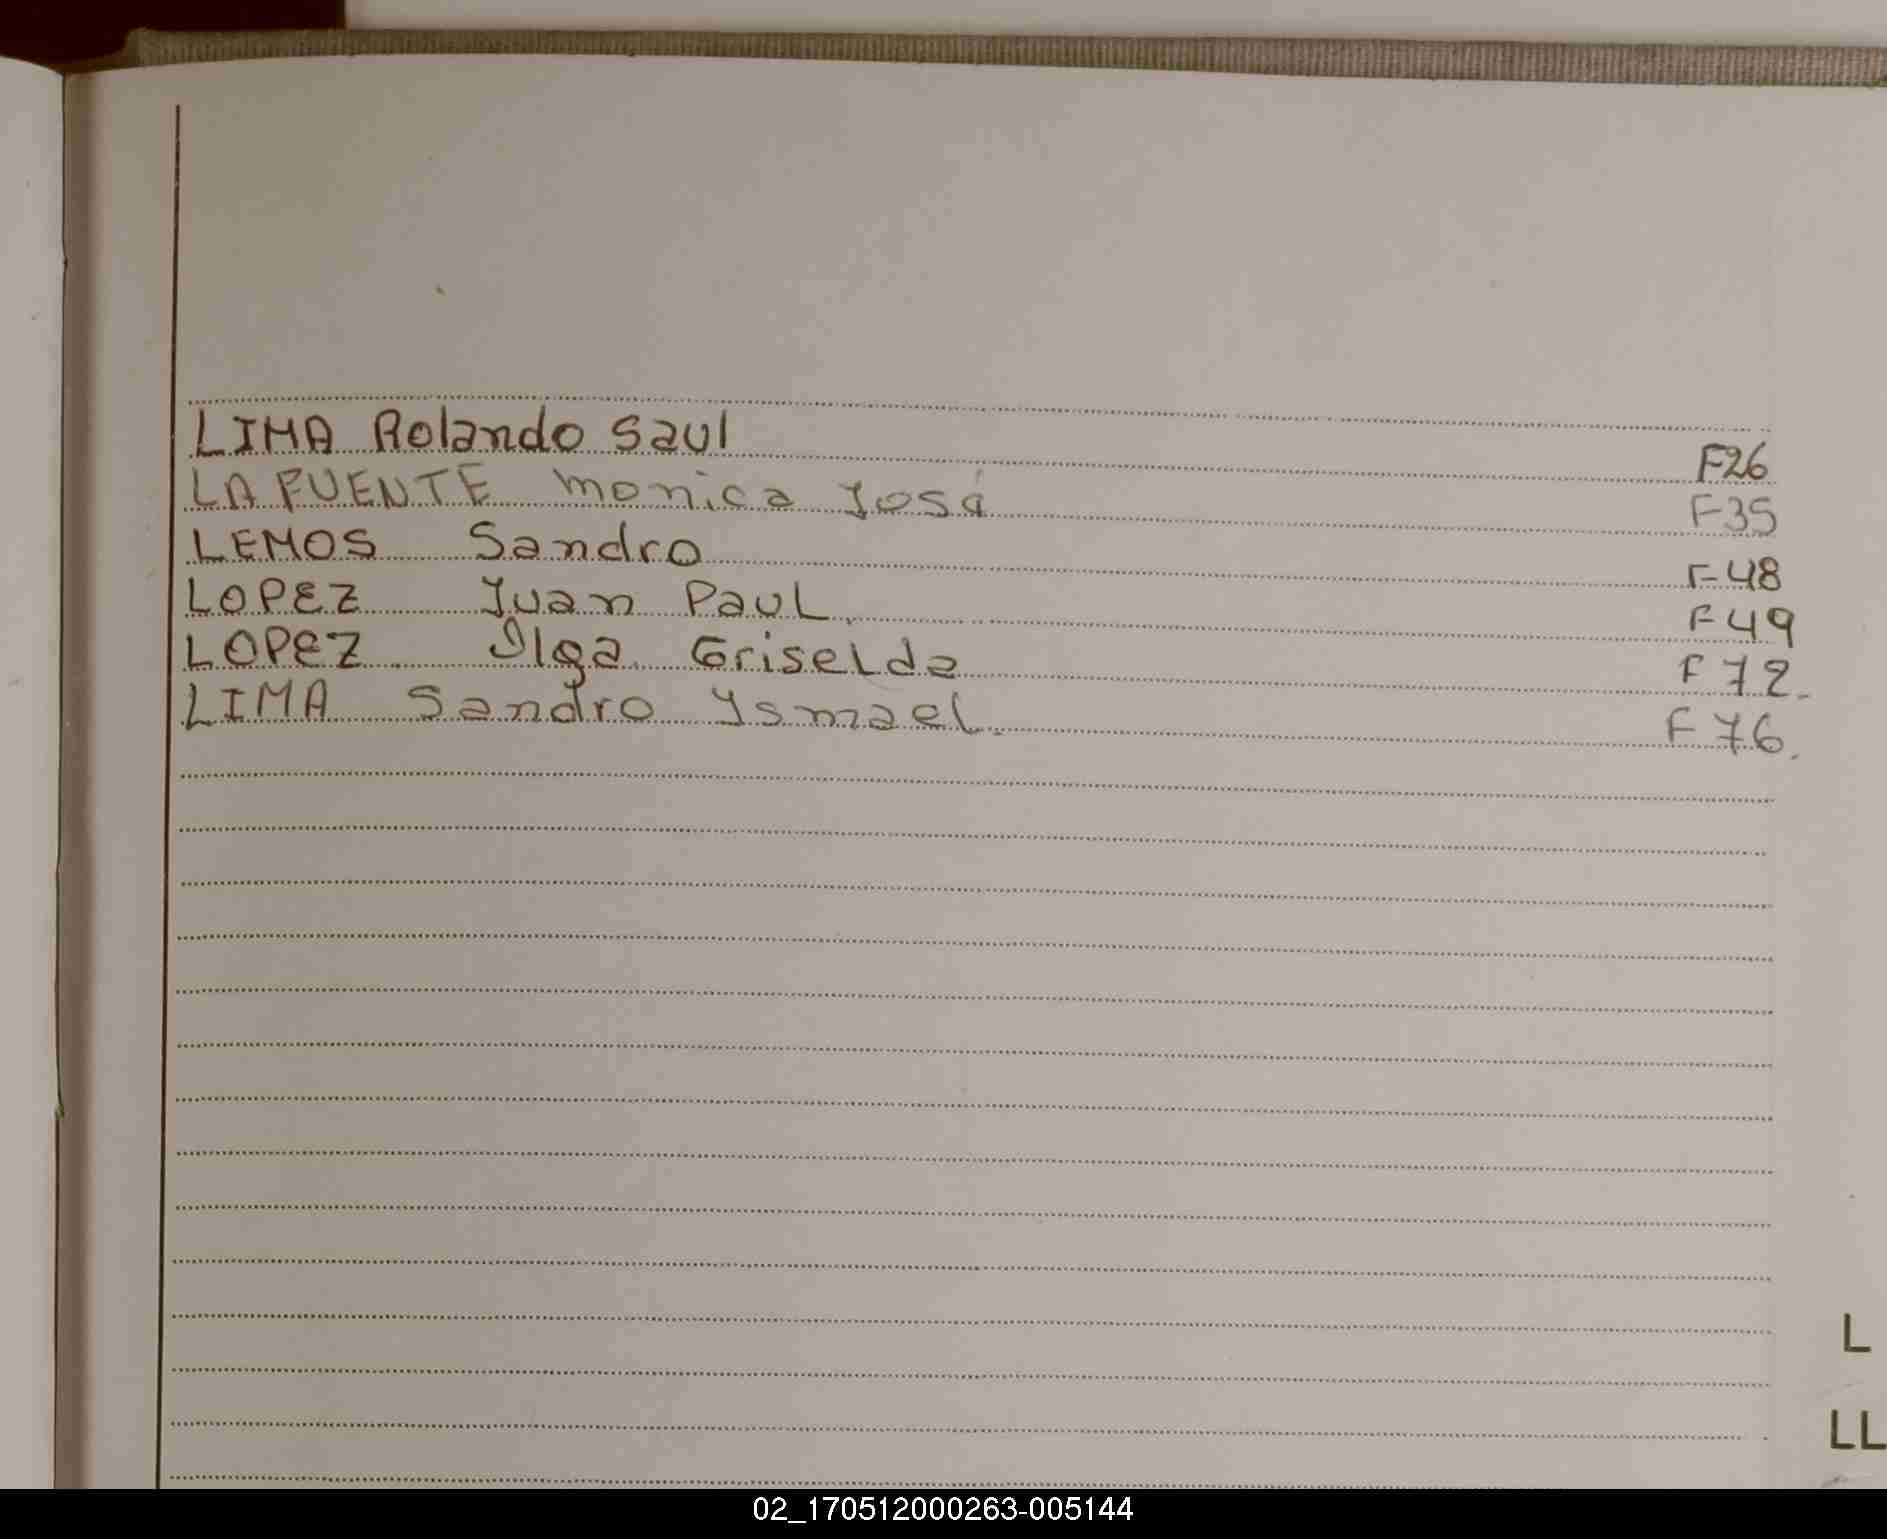 LIMA Rolando Saul F26
LA FUENTE Monica José F35
LEMOS Sandro F48
LOPEZ Juan Paul. F49
LOPEZ Olga Griselda F72.
LIMA Sandro Ysmael. F76.
L
LL
02_170512000263-005144